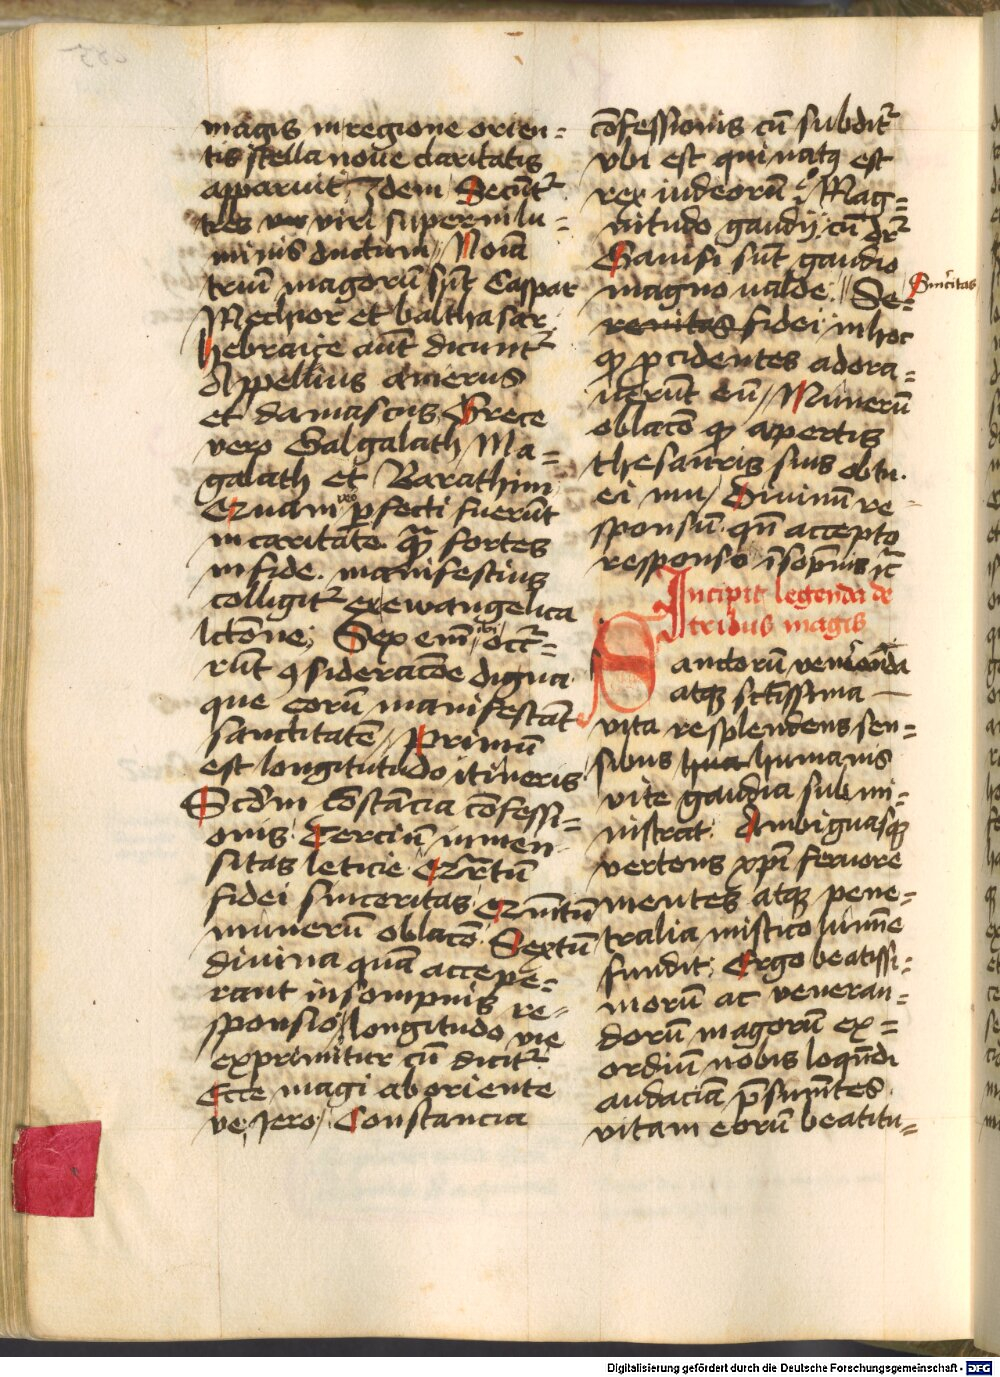 magis in regione orien=
tis stella noue claritatis
apparuit Idem Secunt᷑
tres viri superni lu=
minis ductum Noīa
triū magorū sūt Caspar
Melchior et balthasar
hebraice aūt dicunt᷑
Appellius Amerus
et damascus Grece
vero Galgalath Ma=
galath et Barathim
Quam perfecti fuerūt
in caritate qm̄ fortes
in fide manifestius
colligit᷑ ex ewangelica
lc̄tione Sex em̄ ibi occr=
rūt ꝯsideracōe digna
que eorū manifestāt
sanctitatē Primū
est longitutudo itineris
Scd̄m cōstācia cōfessi=
onis Terciū inmen
sitas leticie Quartū
fidei sinceritas Quintū
munerū oblacō Sextū
diuina quā accepe=
rant in sompnis re=
sponsio longitudo vie
exprimitur cū dicit᷑
Ecce magi ab oriente
ve Jero Constancia
cōfessionis cū subdit᷑
vbi est qui natꝯ est
rex iudeorū Mag=
nitudo gaudij cū dr᷑
Gauisi sūt gaudio
magno valde Se=
Sincitas
renitas fidei in hoc
ꝙ ꝓcidentes adora=
uerūt eū Munerū
oblacō ꝙ apertis
thesauris suis obtu.
ei mu Diuinū re
sponsū qn̄ accepto
responso ī sōpnis ic̄
Incipit legenda de
tribus magis
Sanctorū venerāda
atqꝫ sctīssima
vita resplendens sen=
sibus humanis
vite gaudia submi=
nistrat Ambiguasqꝫ
vertens xp̄i feruore
mentes atqꝫ pene=
tralia mistico lumīe
fundit Ergo beatissi=
morū ac veneran=
dorū magorū ex=
ordiū nobis loquēdi
audaciā p̄sumētes
vitam eorū beatitu=
Digitalisierung gefördert durch die Deutsche Forschungsgemeinschaft - DFG